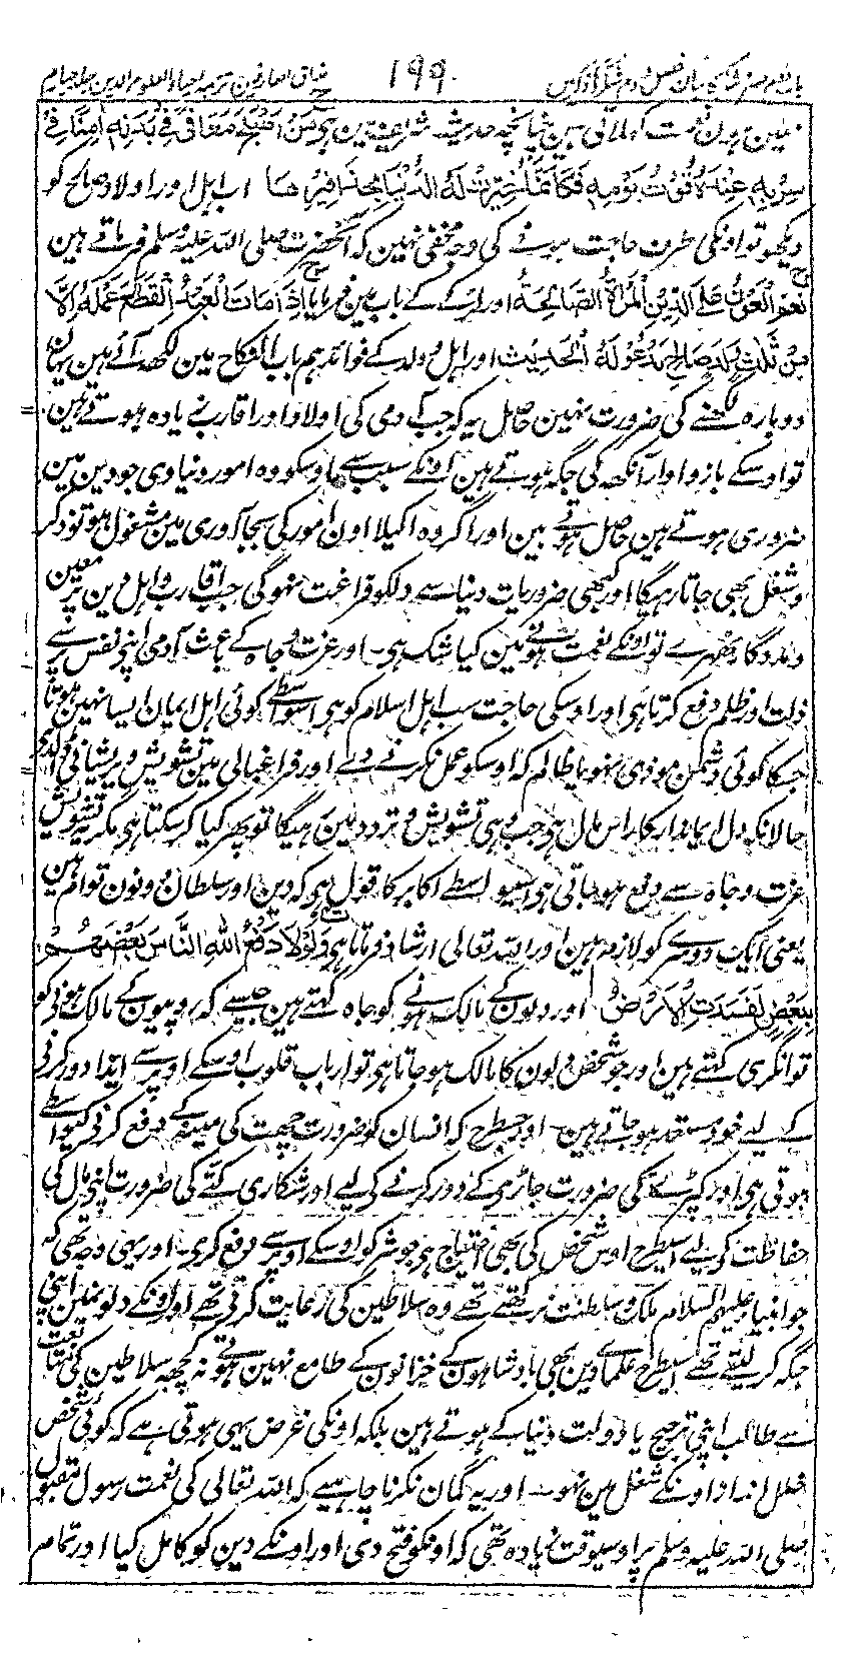 مذاق العارفین ترجمہ احیاء العلوم الدین جلد چہارم ۱۹۹ باب صبر و شکر کا بیان فصل دوم شکر کا ذکر
نہین بدون نعمت کہلاتی ہین چنانچہ حدیث شریف مین ہی مَنْ اَصْبَحَ مُعَافًى فِیْ بَدَنِهٖ اٰمِنًا فِیْ
سِرْبِهٖ عِنْدَهٗ قُوْتُ یَوْمِهٖ فَکَاَنَّمَا حُیِّزَتْ لَهُ الدُّنْیَا بِحَذَافِیْرِهَا اب اہل اور اولاد صالح کو
دیکھو تو اونکی طرف حاجت ہونے کی وجہ مخفی نہین کہ آنحضرت صلی اللہ علیہ وسلم فرماتے ہین
نِعْمَ الْعَوْنُ عَلَی الدِّیْنِ الْمَرْأَةُ الصَّالِحَةُ اور لڑکے کے باب مین فرمایا اِذَا مَاتَ الْعَبْدُ اِنْقَطَعَ عَمَلُهٗ اِلَّا
مِنْ ثَلٰثٍ وَلَدٍ صَالِحٍ یَدْعُوْ لَهٗ الْحَدِیْث اور اہل و ولد کے فوائد ہم باب النکاح مین لکھ آئے ہین یہان
دوبارہ لکھنے کی ضرورت نہین حاصل یہ کہ جب آدمی کی اولاد اور اقارب زیادہ ہوتے ہین
تو اوسکے بازو اور آنکھ کی جگہ ہوتے ہین اونکے سبب سے اوسکو وہ امور دنیاوی جو دین مین
ضروری ہوتے ہین حاصل ہوتے ہین اور اگر وہ اکیلا اون امور کی بجا آوری مین مشغول ہو تو ذکر
و شغل بھی جاتا رہیگا اور کبھی ضروریات دنیا سے دلکو فراغت نہوگی جب اقارب و اہل دین پر معین
و مددگار ٹھہرے تو اونکے نعمت ہونے مین کیا شک ہی۔ اور عزت و جاہ کے باعث آدمی اپنے نفس سے
ذلت اور ظلم دفع کرتا ہی اور اوسکی حاجت سب اہل اسلام کو ہی اسواسطے کوئی اہل ایمان ایسا نہین ہوتا
جسکا کوئی دشمن موذی نہو یا ظالم کہ اوسکو عمل نکرنے دے اور فراغبالی مین تشویش و پریشانی ڈالدے
حالانکہ دل ایماندار کا راس المال ہی جب وہی تشویش و تردد مین رہیگا تو پھر کیا کر سکتا ہی مگر یہ تشویش
عزت و جاہ سے دفع ہوجاتی ہی اسیواسطے اکابر کا قول ہی کہ دین اور سلطان دونون توام ہین
یعنی ایک دوسرے کو لازم ہین اور اللہ تعالی ارشاد فرماتا ہی وَلَوْلَا دَفْعُ اللهِ النَّاسَ بَعْضَهُمْ
بِبَعْضٍ لَفَسَدَتِ الْاَرْضُ اور دلون کے مالک ہونے کو جاہ کہتے ہین جیسے کہ روپیون کے مالک ہونے کو
توانگری کہتے ہین اور جو شخص دلون کا مالک ہوجاتا ہی تو ارباب قلوب اوسکے اوپر سے ایذا دور کرنے
کے لیے خود مستعد ہوجاتے ہین۔ اور جسطرح کہ انسان کو ضرورت چھت کی مینہ کے دفع کرنے کیواسطے
ہوتی ہی اور کپڑے کی ضرورت جاڑے کے دور کرنے کے لیے اور شکاری کتے کی ضرورت اپنے مال کی
حفاظت کے لیے اسیطرح اوس شخص کی بھی احتیاج ہی جو شر کو اوسکے اوپر سے دفع کرے۔ اور یہی وجہ تھی کہ
جو انبیا علیہم السلام ملک و سلطنت نرکھتے تھے وہ سلاطین کی رعایت کرتے تھے اور اونکے دلونمین اپنی
جگہ کر لیتے تھے اسیطرح علماے دین بھی بادشاہون کے خزانون کے طامع نہین ہوتے نہ کچھ سلاطین کی متابعت
سے طالب اپنی ترجیح یا دولت دنیا کے ہوتے ہین بلکہ اونکی غرض یہی ہوتی ہے کہ کوئی شخص
خلل انداز اونکے شغل مین نہو۔ اور یہ گمان نکرنا چاہیے کہ اللہ تعالی کی نعمت رسول مقبول
صلی اللہ علیہ وسلم پر اوسیوقت زیادہ تھی کہ اونکو فتح دی اور اونکے دین کو کامل کیا اور تمام